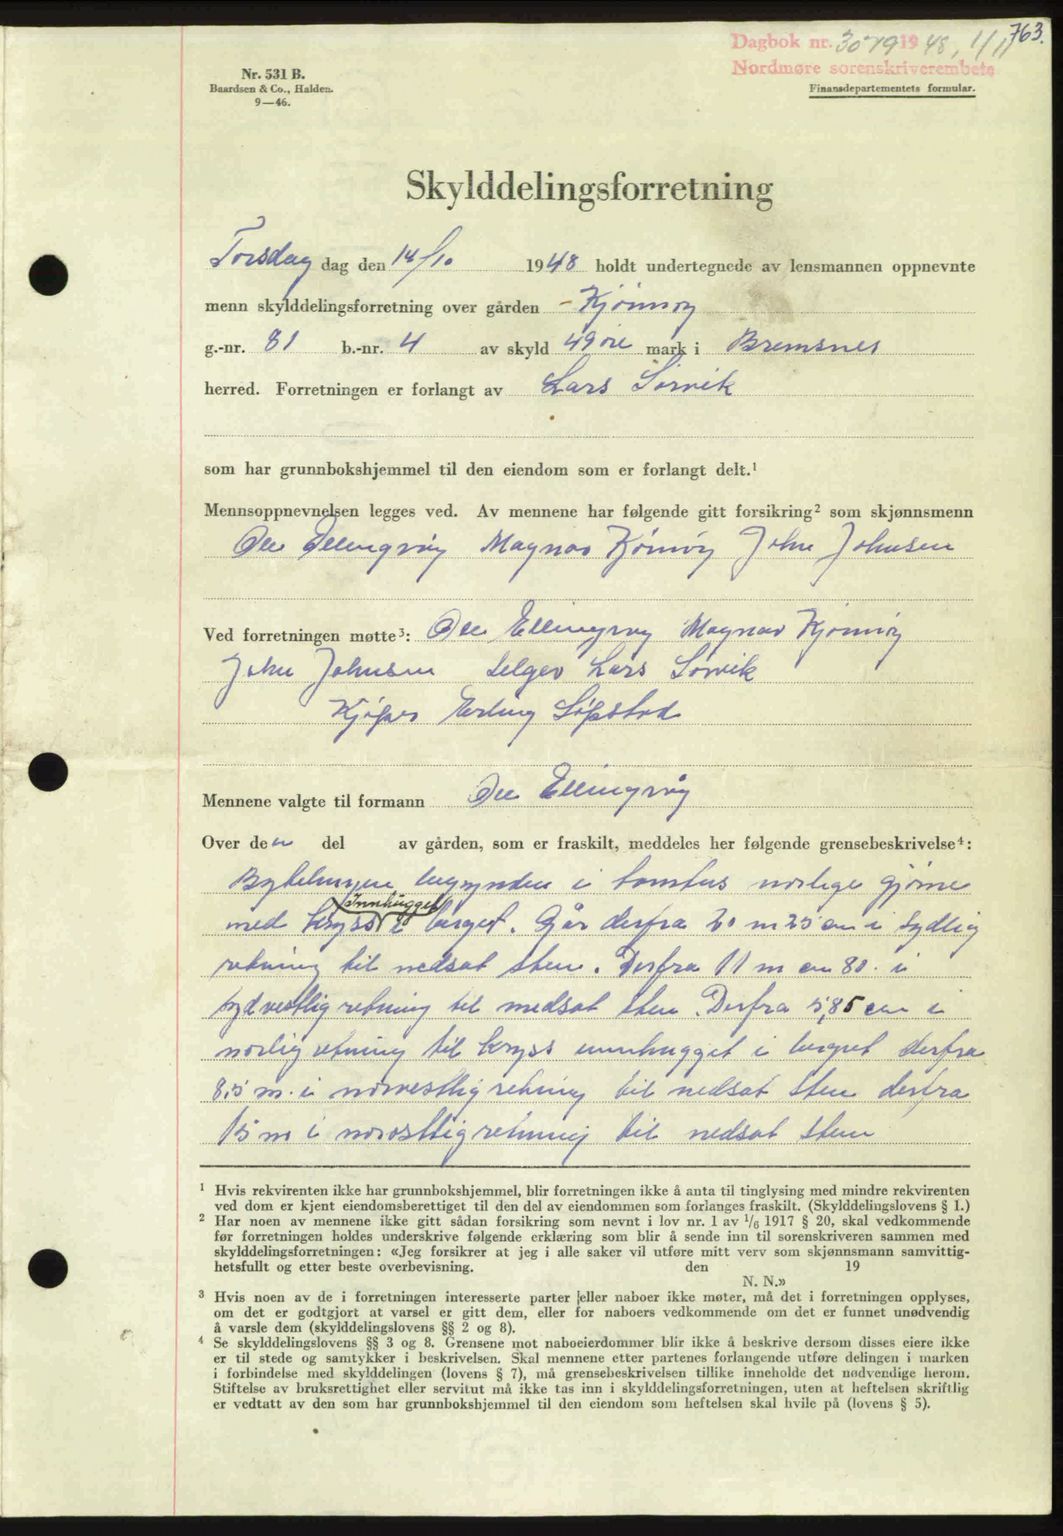 763.
Dagbok nr. 3079 1948, 1/11
Nordmøre sorenskriverembete
Nr. 531 B.
Baardsen & Co., Halden.
9—46.
Finansdepartementets formular.
Skylddelingsforretning
Torsdag dag den 14/10 1948 holdt undertegnede av lensmannen oppnevnte
menn skylddelingsforretning over gården - Kjønnøy
g.-nr. 81 b.-nr. 4 av skyld 49 øre mark i Bremsnes
herred. Forretningen er forlangt av Lars Sørvik
som har grunnbokshjemmel til den eiendom som er forlangt delt.¹
Mennsoppnevnelsen legges ved. Av mennene har følgende gitt forsikring² som skjønnsmenn
Ole Ellingvåg Magnar Kjønnøy John Johnsen
Ved forretningen møtte³: Ole Ellingvåg Magnar Kjønnøy
John Johnsen Selger Lars Sørvik
Kjøper Erling Søpstad
Mennene valgte til formann Ole Ellingvåg
Over den del av gården, som er fraskilt, meddeles her følgende grensebeskrivelse⁴:
begynder i tomtens norlige gjørne
med kryss Innhugget i berget. Går derfra 20 m 25 cm i sydlig
retning til nedsat sten. Derfra 11 m cm 80. i
sydvestlig retning til nedsat sten. Derfra 5,85 cm i
norlig retning til kryss innhugget i berget derfra
8,5 m. i norvestlig retning til nedsat sten derfra
15 m i norostlig retning til nedsat sten
¹ Hvis rekvirenten ikke har grunnbokshjemmel, blir forretningen ikke å anta til tinglysing med mindre rekvirenten
ved dom er kjent eiendomsberettiget til den del av eiendommen som forlanges fraskilt. (Skylddelingslovens § 1.)
² Har noen av mennene ikke gitt sådan forsikring som nevnt i lov nr. 1 av 1/6 1917 § 20, skal vedkommende
før forretningen holdes underskrive følgende erklæring som blir å sende inn til sorenskriveren sammen med
skylddelingsforretningen: «Jeg forsikrer at jeg i alle saker vil utføre mitt verv som skjønnsmann samvittig-
hetsfullt og etter beste overbevisning. den 19
N. N.»
³ Hvis noen av de i forretningen interesserte parter eller naboer ikke møter, må det i forretningen opplyses,
om det er godtgjort at varsel er gitt dem, eller for naboers vedkommende om det er funnet unødvendig
å varsle dem (skylddelingslovens §§ 2 og 8).
⁴ Se skylddelingslovens §§ 3 og 8. Grensene mot naboeierdommer blir ikke å beskrive dersom disses eiere ikke
er til stede og samtykker i beskrivelsen. Skal mennene etter partenes forlangende utføre delingen i marken
i forbindelse med skylddelingen (lovens § 7), må grensebeskrivelsen tillike inneholde det nødvendige herom.
Stiftelse av bruksrettighet eller servitut må ikke tas inn i skylddelingsforretningen, uten at heftelsen skriftlig
er vedtatt av den som har grunnbokshjemmel til den eiendom som heftelsen skal hvile på (lovens § 5).